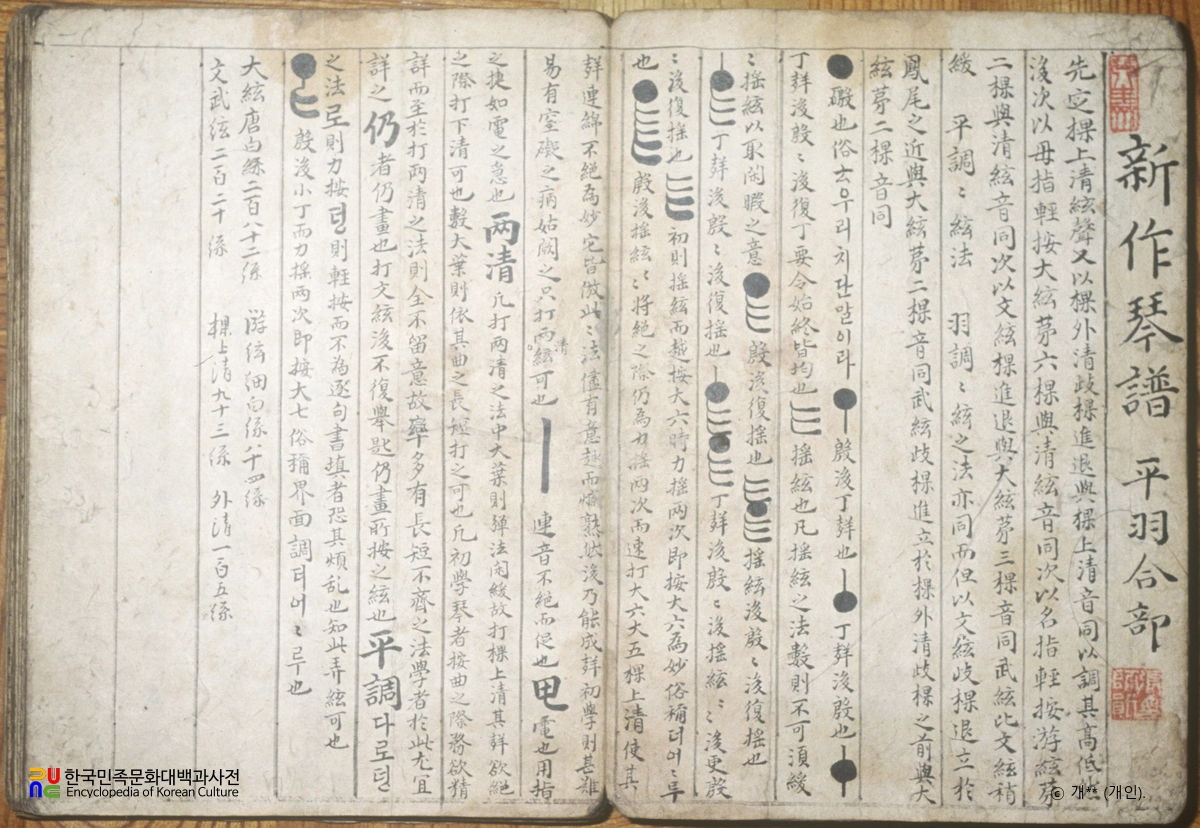 新作琴譜 平羽合部
先定棵上清絃聲又以棵外清歧棵進退與棵上清音同以調其高低然
後次以母指輕按大絃第六棵與清絃音同次以名指輕按游絃第
二棵與清絃音同次以文絃棵進退與大絃第三棵音同武絃比文絃稍
緩 平調〻絃法 羽調〻絃之法亦同而但以文絃歧棵退立於
鳳尾之近與大絃第二棵音同武絃歧棵進立於棵外清歧棵之前與大
絃第二棵音同
也俗云우리치단말이라 後丁㪵也 丁㪵後也
丁㪵後〻後復丁要令始終皆均也 搖絃也凡搖絃之法數則不可須緩
〻搖絃以取閑暇之意 後復搖也 搖絃後〻後復搖也
丁㪵後〻後復搖也 丁㪵後〻後搖絃〻後更
〻後復搖也 初則搖絃而越按大六時力搖兩次即按大六為妙俗稱더어〻루
也 後搖絃〻將絕之際仍為力搖兩次而速打大六大五棵上清使其
連綿不絕為妙它皆倣此〻法儘有意趣而慣熟然後乃能成初學則甚難
易有窒礙之病姑闕之只打兩絃可也 連音不絕而促也 电 電也用指
清
之捷如電之急也 兩清 凡打兩清之法中大葉則彈法閑緩故打棵上清其欲絕
之際打下清可也數大葉則依其曲之長短打之可也凡初學琴者按曲之際務欲精
詳而至於打兩清之法則全不留意故率多有長短不齊之法學者於此尤宜
詳之 仍 者仍畫也打文絃後不復舉匙仍畫所按之絃也 平調 다로덩
之法로則力按덩則輕按而不為逐句書填者恐其煩乱也知此弄絃可也
後小丁而力搖兩次即按大七俗稱界面調더어〻루也
大絃唐白絲二百八十二係 游絃細白係八十四係
文武絃二百二十係 棵上清九十三係 外清一百五係
한국민족문화대백과사전
Encyclopedia of Korean Culture
© 개** (개인).